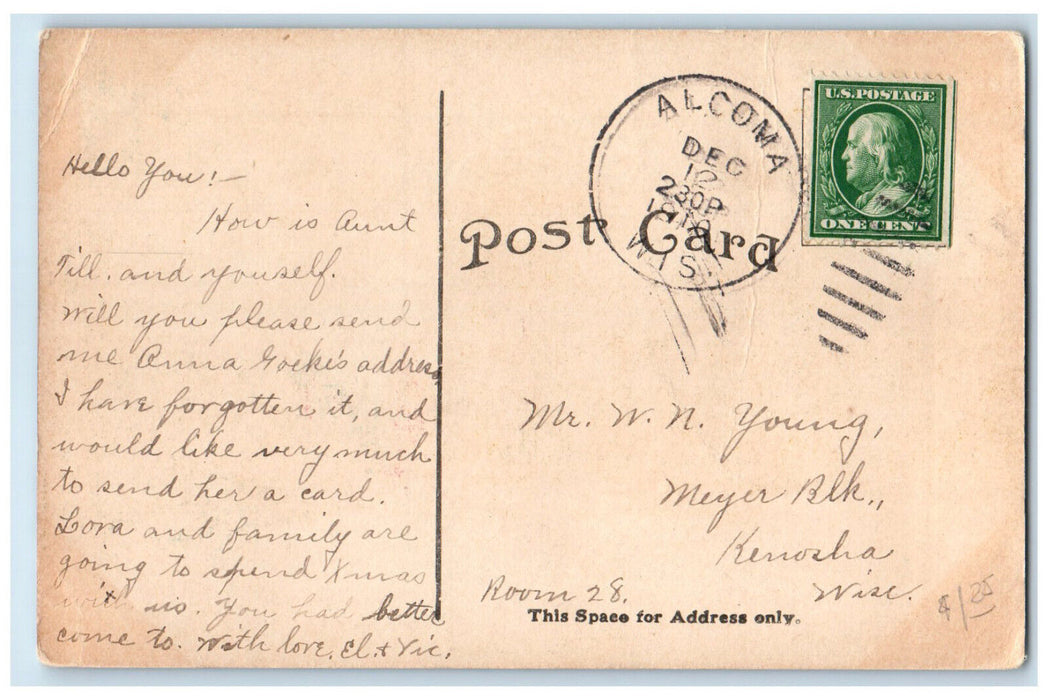 Hello You!—
How is Aunt
Till. and youself.
Will you please send
me Anna Goeke's address,
I have forgotten it, and
would like very much
to send her a card.
Lora and family are
going to spend Xmas
with us. You had better
come to. With love, El. & Vic.
Post Card
ALGOMA
DEC
12
230P
WIS.
U.S. POSTAGE
ONE CENT
Mr. W. N. Young,
Meyer Blk.,
Kenosha
Wisc.
Room 28.
This Space for Address only.
$/25